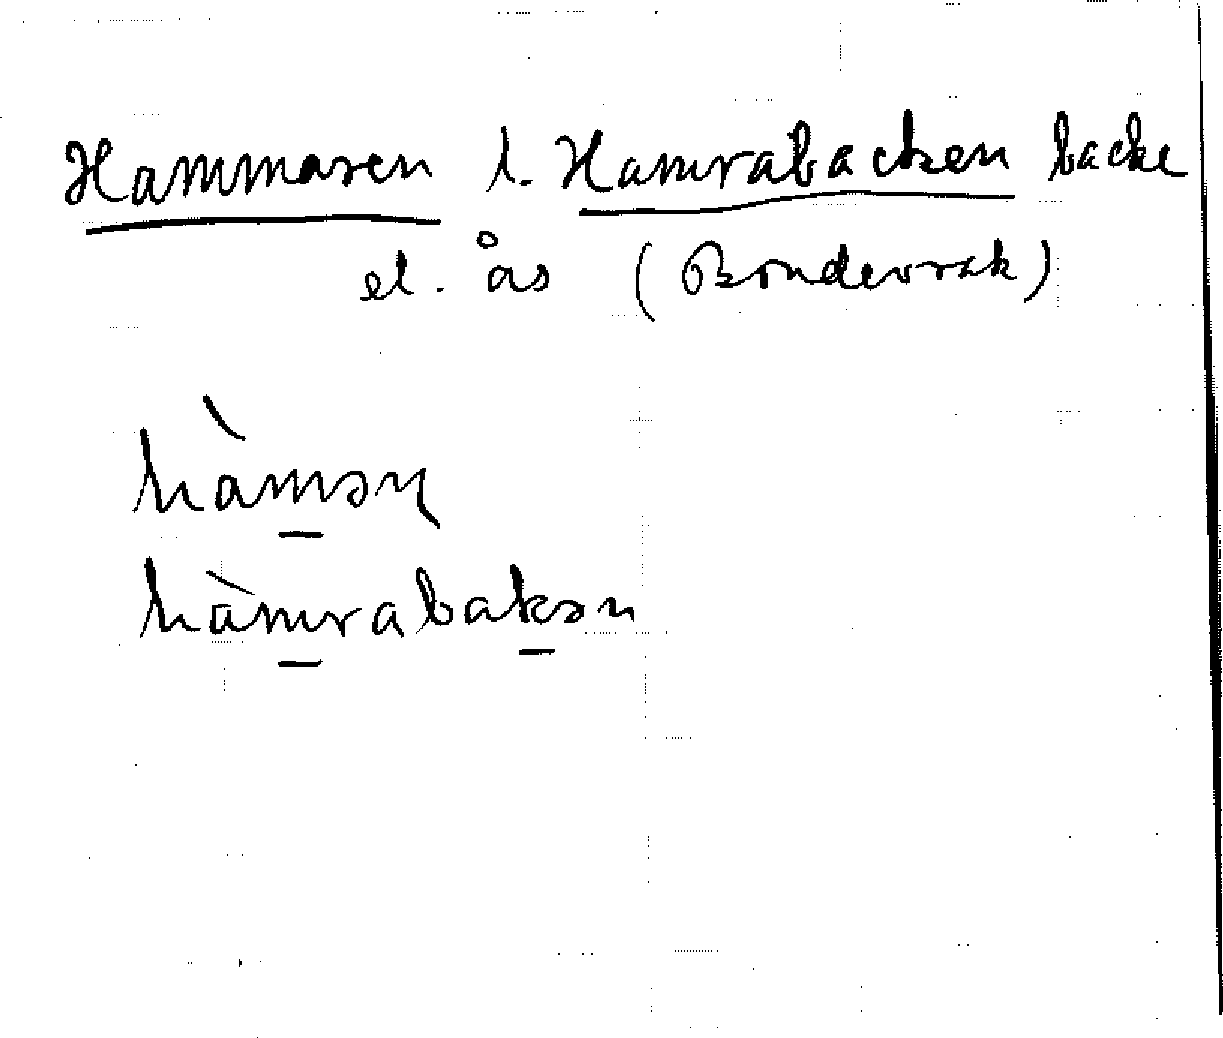 Hammaren l. Hamrabacken backe
el. ås (Bondevrak)
hàməɳ
hàmrabakən